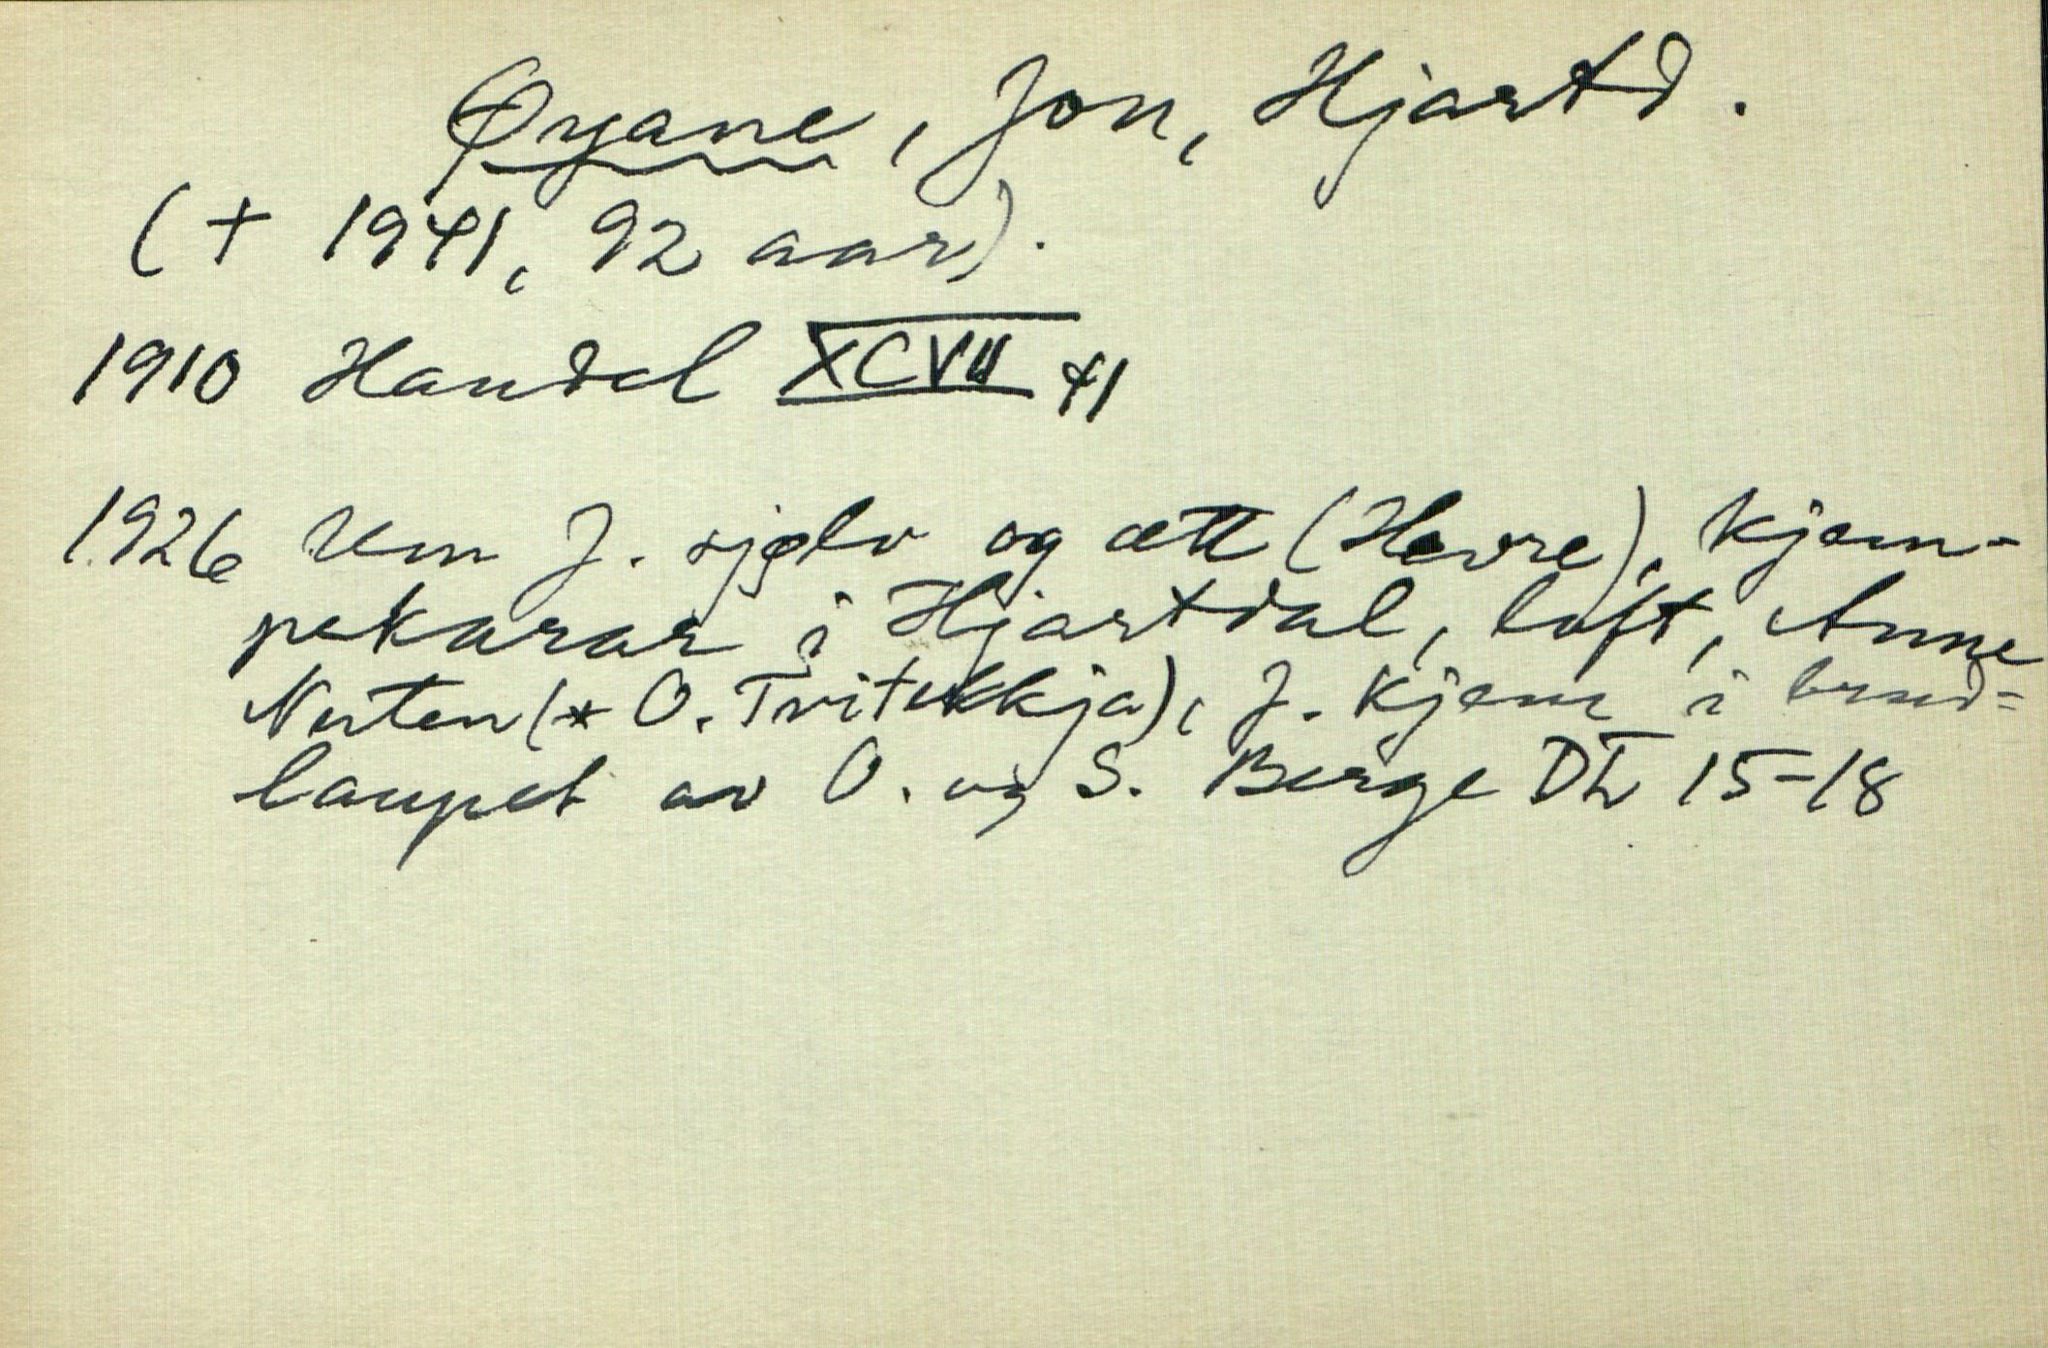 Øyane, Jon, Hjartd.
(+ 1941, 92 aar).
1910 Handel XCVII 41
1926 Um J. sjølv og ætt (Hovre), kjem-
pekarar i Hjartdal, loft, Anne
Nerten (* O. Tvitekkja), J. kjem i brud-
laupet av O. og S. Berge 15-18